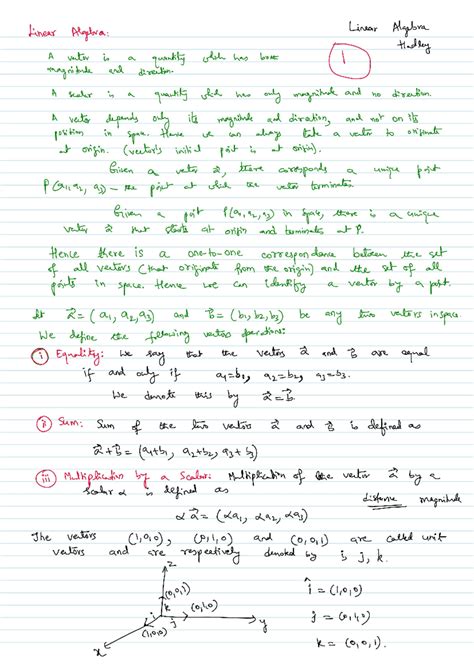 Linear Algebra:
Linear Algebra
Hadley
1
A vector is a quantity which has both
magnitude and direction.
A scalar is a quantity which has only magnitude and no direction.
A vector depends only its magnitude and direction, and not on its
position in space. Hence we can always take a vector to originate
at origin. (vector's initial point is at origin).
Given a vector a⃗, there corresponds a unique point
P(a₁, a₂, a₃) – the point at which the vector terminates.
Given a point P(a₁, a₂, a₃) in space, there is a unique
vector a⃗ that starts at origin and terminates at P.
Hence there is a one-to-one correspondence between the set
of all vectors (that originate from the origin) and the set of all
points in space. Hence we can identify a vector by a point.
Let a⃗ = (a₁, a₂, a₃) and b⃗ = (b₁, b₂, b₃) be any two vectors in space.
We define the following vector operations:
(i) Equality: We say that the vectors a⃗ and b⃗ are equal
if and only if a₁=b₁, a₂=b₂, a₃=b₃.
We denote this by a⃗=b⃗.
(ii) Sum: Sum of the two vectors a⃗ and b⃗ is defined as
a⃗+b⃗ = (a₁+b₁, a₂+b₂, a₃+b₃)
(iii) Multiplication by a Scalar: Multiplication of the vector a⃗ by a
scalar α is defined as
distance magnitude
α a⃗ = (αa₁, αa₂, αa₃)
The vectors (1,0,0), (0,1,0) and (0,0,1) are called unit
vectors and are respectively denoted by i, j, k.
z
(0,0,1)
k
i
j
(0,1,0)
y
(1,0,0)
x
î = (1,0,0)
j = (0,1,0)
k = (0,0,1).